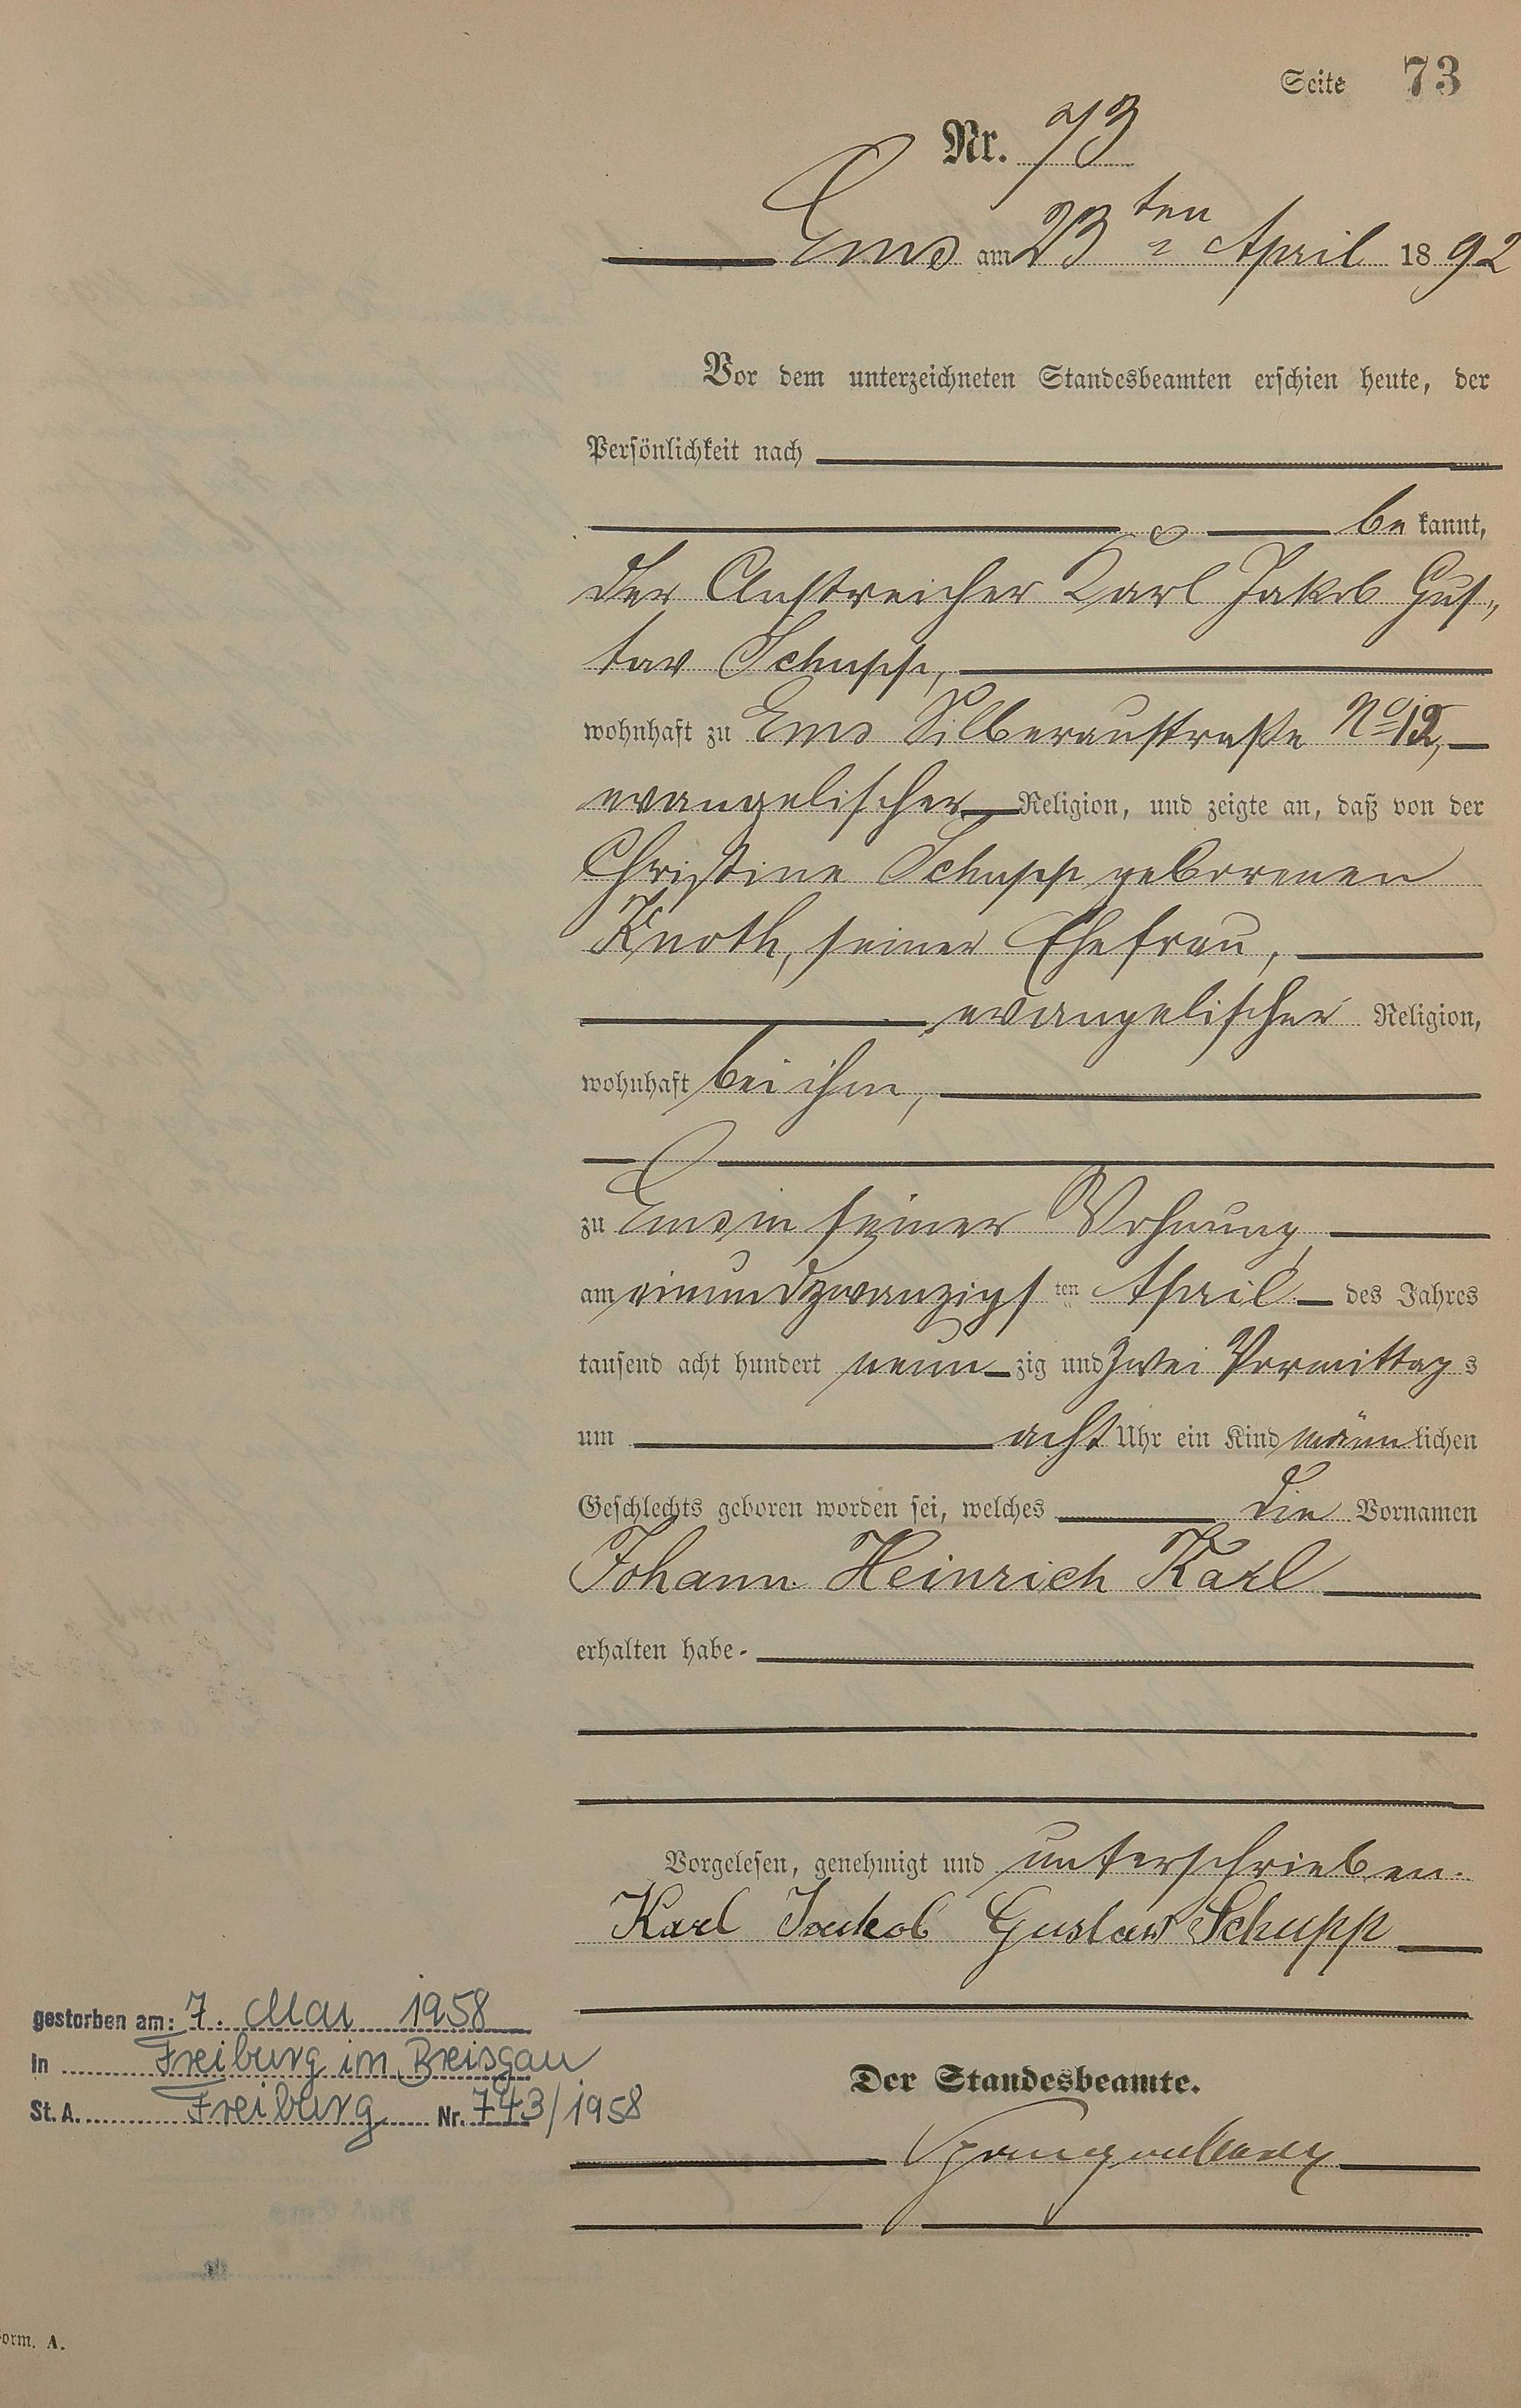 Seite 73
Nr. 73
Ems am 23ten April 1892
Vor dem unterzeichneten Standesbeamten erschien heute, der
Persönlichkeit nach
be kannt,
der Anstreicher Karl Jakob Gus„
tav Schupp,
wohnhaft zu Ems Silberaustraße No 12,
evangelischer Religion, und zeigte an, daß von der
Christine Schupp geborenen
Knoth, seiner Ehefrau,
evangelischer Religion,
wohnhaft bei ihm,
zu Ems in seiner Wohnung,
am einundzwanzigsten April des Jahres
tausend acht hundert neunzig und zwei Vormittags
um acht Uhr ein Kind männlichen
Geschlechts geboren worden sei, welches die Vornamen
Johann Heinrich Karl
erhalten habe.
Vorgelesen, genehmigt und unterschrieben.
Karl Jakob Gustav Schupp
Der Standesbeamte.
gestorben am: 7. Mai 1958
in Freiburg im Breisgau
St. A. Freiburg Nr. 743/1958
orm. A.